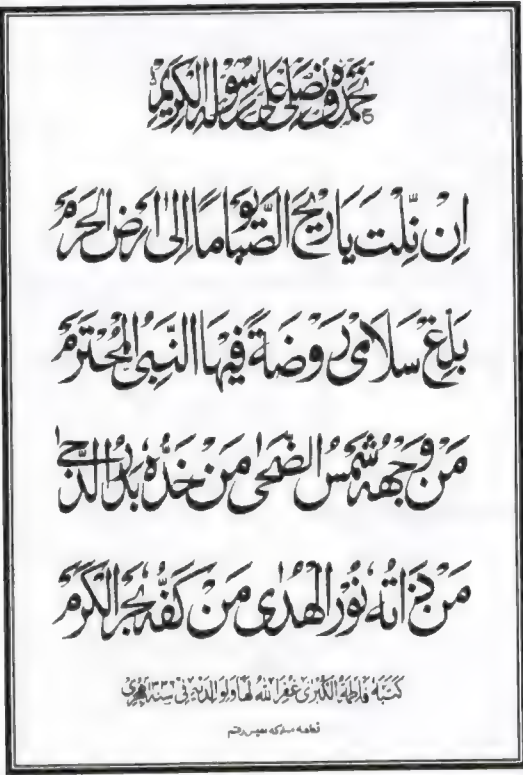 نحمده ونصلي على رسوله الكريم
اِنْ نِّلْتَ يَا رِيْحَ الصَّبَا يَوْمًا اِلٰى اَرْضِ الْحَرَمْ
بَلِّغْ سَلَامِیْ رَوْضَةً فِيْهَا النَّبِیُّ الْمُحْتَرَمْ
مَنْ وَّجْهُهٗ شَمْسُ الضُّحٰی مَنْ خَدُّهٗ بَدْرُ الدُّجٰی
مَنْ ذَاتُهٗ نُوْرُ الْهُدٰی مَنْ كَفُّهٗ بَحْرُ الْكَرَمْ
كتبة فاطمة الكبرى غفر الله لها ولوالديه في سنة هجري